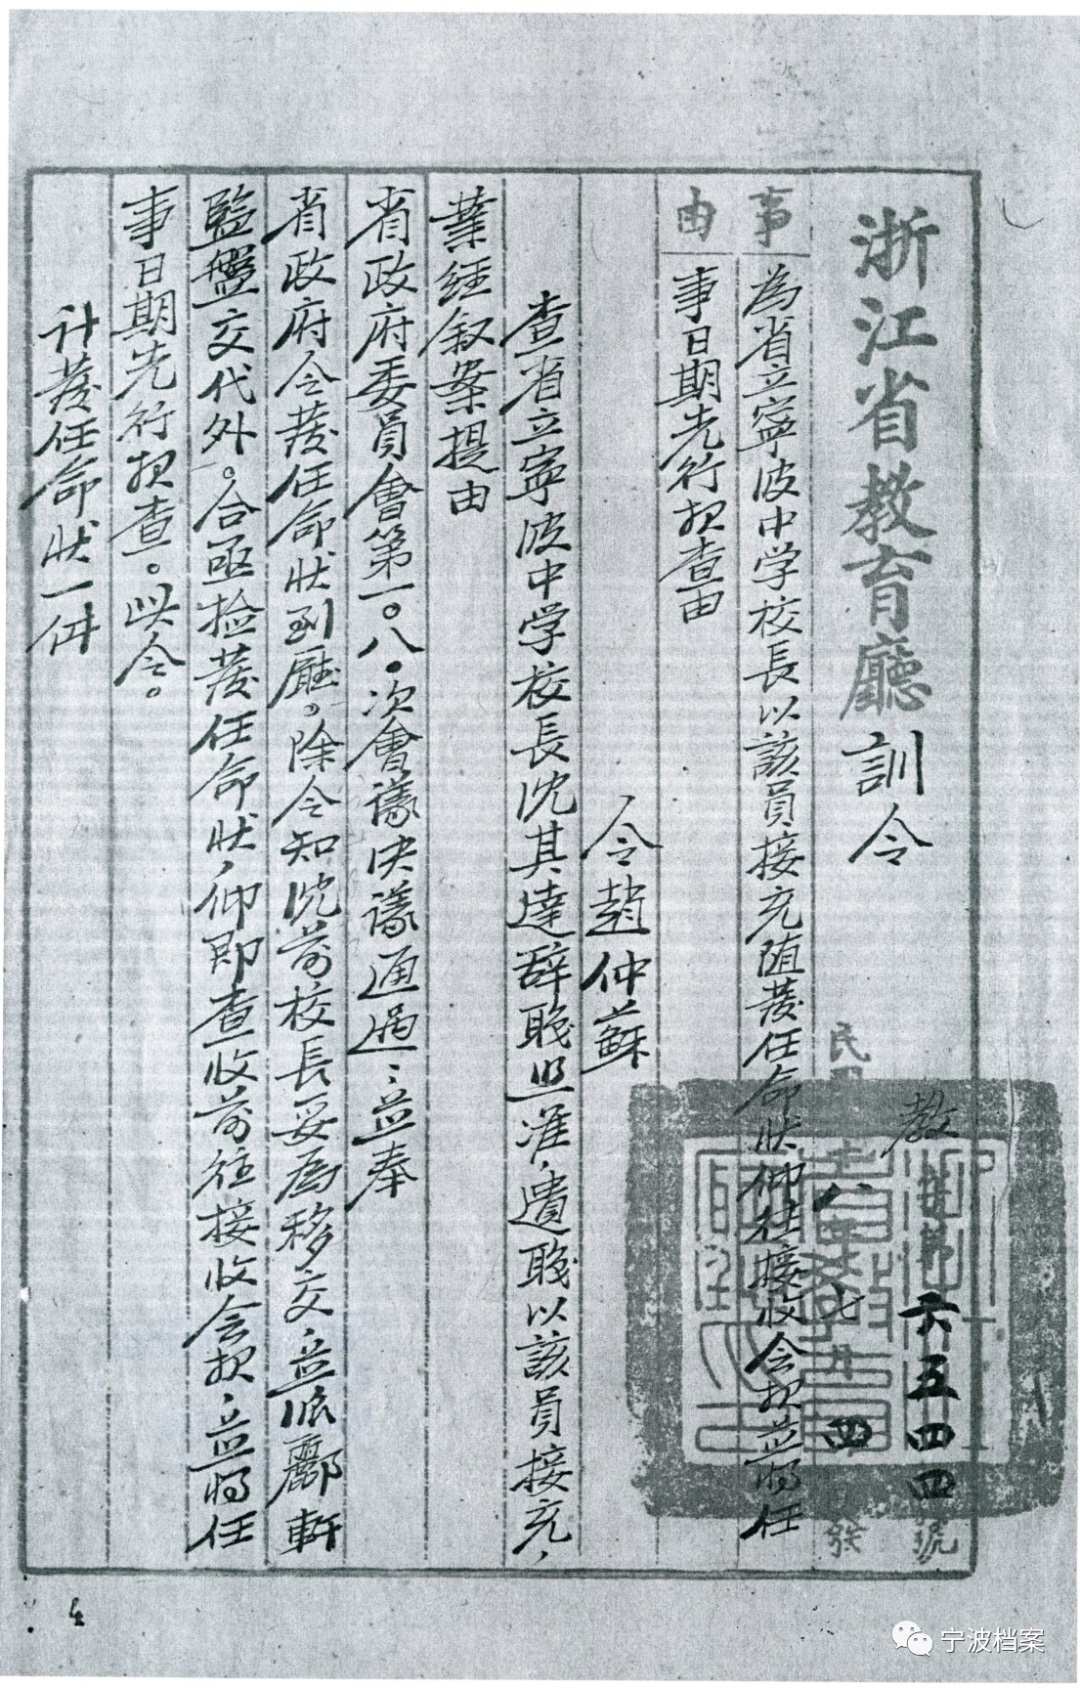 浙江省教育廳訓令
教
字第六五四四號
民國
八年七月四
發
事由
為省立寧波中学校長以該員接充随發任命狀仰往接收会报並将任
事日期先行报查由
令趙仲蘇
查省立寧波中学校長沈其達辞職照准，遺職以該員接充，
業经叙案提由
省政府委員會第一〇八〇次會議决議通過；並奉
省政府令發任命状到廳。除令知沈前校長妥為移交，並派酈軒
監盤交代外。合亟检發任命状，仰即查收前往接收会报，並将任
事日期先行报查。此令。
计發任命状一件
宁波档案